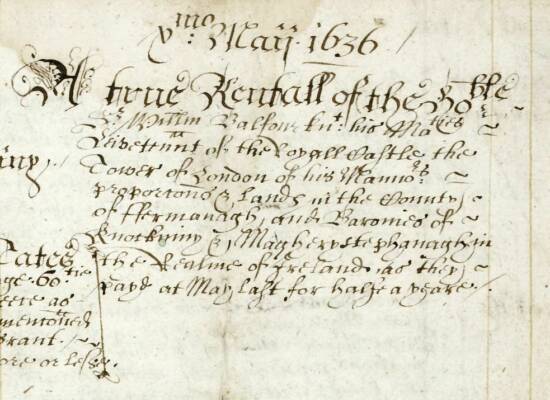 xmo: Maij 1636
A true Rentall of the Hoble
Sr Willm Balfour knt: his Maties
Leivetennt of the Royall Castle the
Tower of London of his Mannors:
proportons & Lands in the County
of ffermanagh, and Baronies of
Knockniny & Magherystephanagh in
the Realme of Ireland as they
payd at May last for halfe a yeare
Tates
age: 60: tie
were as
mentoned
Grant.
ore or lesse.